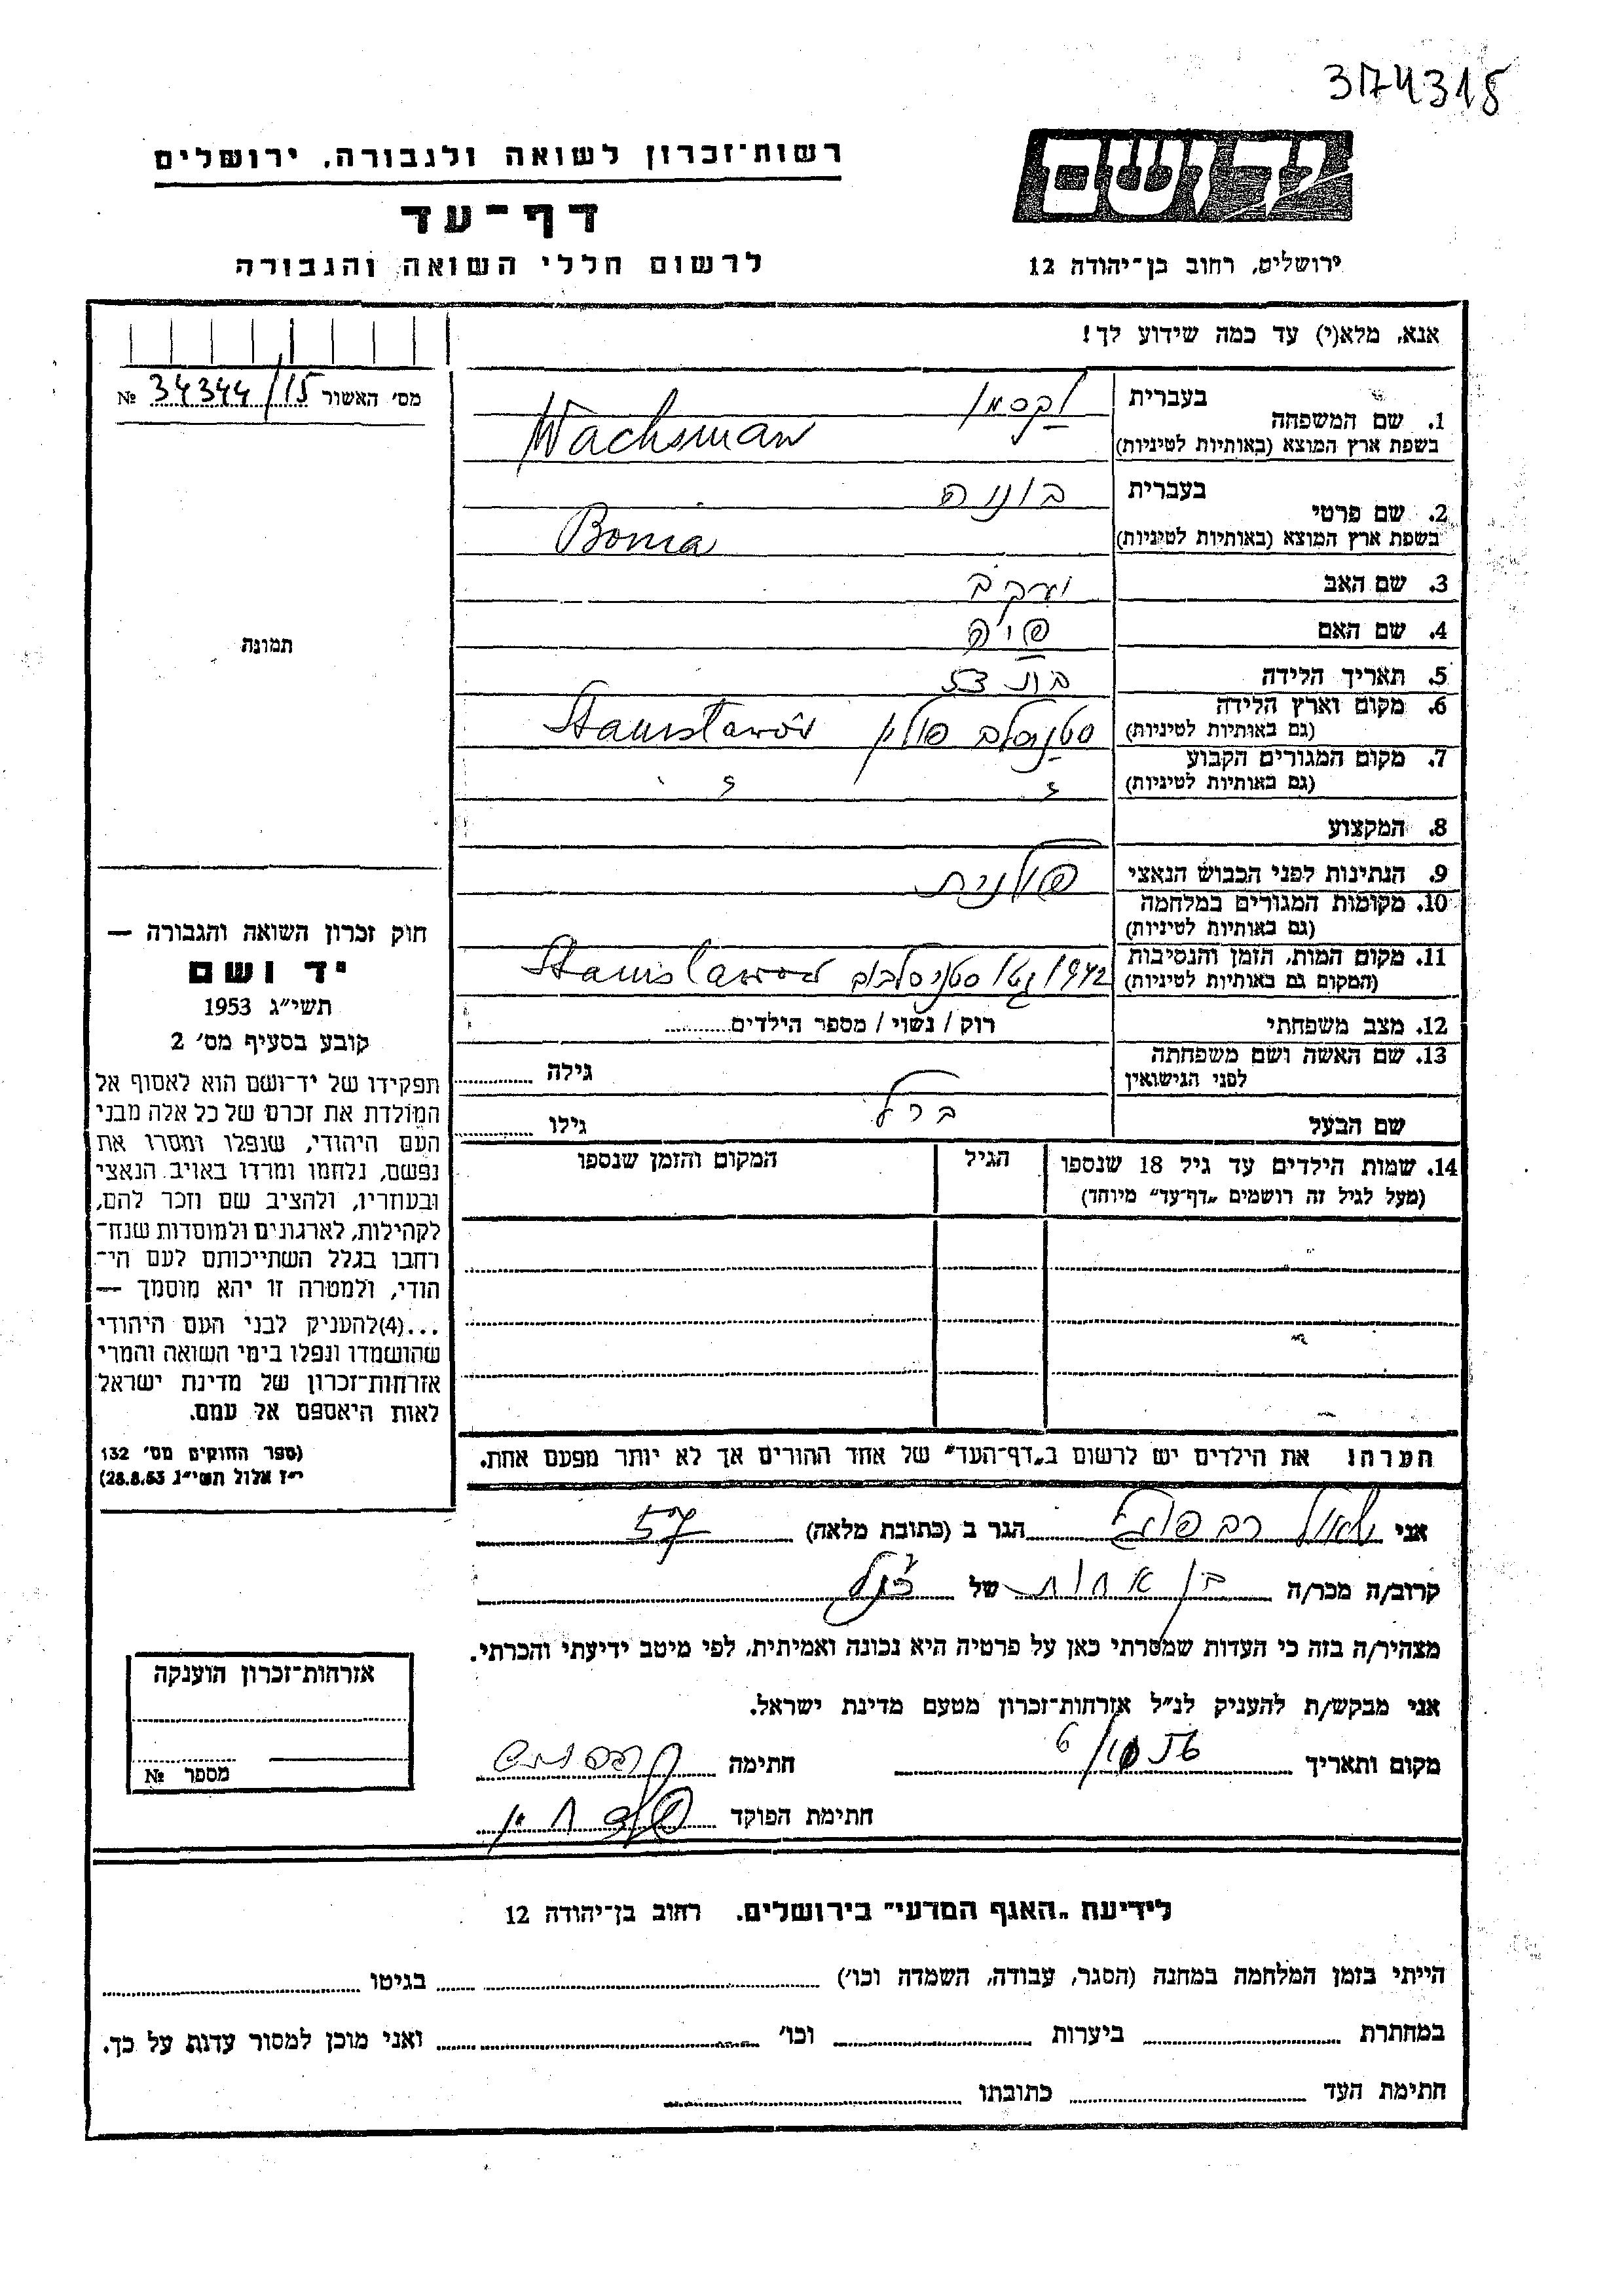 374315
רשות־זכרון לשואה ולגבורה, ירושלים
דף־עד
לרשום חללי השואה והגבורה
יד ושם
ירושלים, רחוב בן־יהודה 12
אנא, מלא(י) עד כמה שידוע לך!
מס׳ האשור 34344/15 №
1. שם המשפחה
בעברית וקסמן
בשפת ארץ המוצא (באותיות לטיניות) Wachsman
2. שם פרטי
בעברית בוניה
בשפת ארץ המוצא (באותיות לטיניות) Bonia
3. שם האב יעקב
4. שם האם
5. תאריך הלידה בת 35
6. מקום וארץ הלידה
(גם באותיות לטיניות) סטניסלב פולין Stanisławów
7. מקום המגורים הקבוע
(גם באותיות לטיניות)
8. המקצוע
9. הנתינות לפני הכבוש הנאצי פולנית
10. מקומות המגורים במלחמה
(גם באותיות לטיניות)
11. מקום המות, הזמן והנסיבות
(המקום גם באותיות לטיניות) 1942 גטו סטניסלבוב Stanislawow
12. מצב משפחתי רוק / נשוי / מספר הילדים
13. שם האשה ושם משפחתה
לפני הנישואין גילה
שם הבעל ברל גילו
14. שמות הילדים עד גיל 18 שנספו הגיל המקום והזמן שנספו
(מעל לגיל זה רושמים „דף־עד״ מיוחד)
הערה: את הילדים יש לרשום ב„דף־העד״ של אחד ההורים אך לא יותר מפעם אחת.
תמונה
חוק זכרון השואה והגבורה —
יד ושם
תשי״ג 1953
קובע בסעיף מס׳ 2
תפקידו של יד־ושם הוא לאסוף אל
המולדת את זכרם של כל אלה מבני
העם היהודי, שנפלו ומסרו את
נפשם, נלחמו ומרדו באויב הנאצי
ובעוזריו, ולהציב שם וזכר להם,
לקהילות, לארגונים ולמוסדות שנח־
רחבו בגלל השתייכותם לעם הי־
הודי, ולמטרה זו יהא מוסמך —
...(4)להעניק לבני העם היהודי
שהושמדו ונפלו בימי השואה והמרי
אזרחות־זכרון של מדינת ישראל
לאות היאספם אל עמם.
(ספר החוקים מס׳ 132
י״ז אלול תשי״ג 28.8.53)
אני הגר ב (כתובת מלאה)
קרוב/ה מכר/ה בן אחות של
מצהיר/ה בזה כי העדות שמסרתי כאן על פרטיה היא נכונה ואמיתית, לפי מיטב ידיעתי והכרתי.
אני מבקש/ת להעניק לנ״ל אזרחות־זכרון מטעם מדינת ישראל.
מקום ותאריך חתימה
חתימת הפוקד
אזרחות־זכרון הוענקה
מספר №
לידיעת „האגף המדעי״ בירושלים. רחוב בן־יהודה 12
הייתי בזמן המלחמה במחנה (הסגר, עבודה, השמדה וכו׳) בגיטו
במחתרת ביערות וכו׳ ואני מוכן למסור עדות על כך.
חתימת העד כתובתו